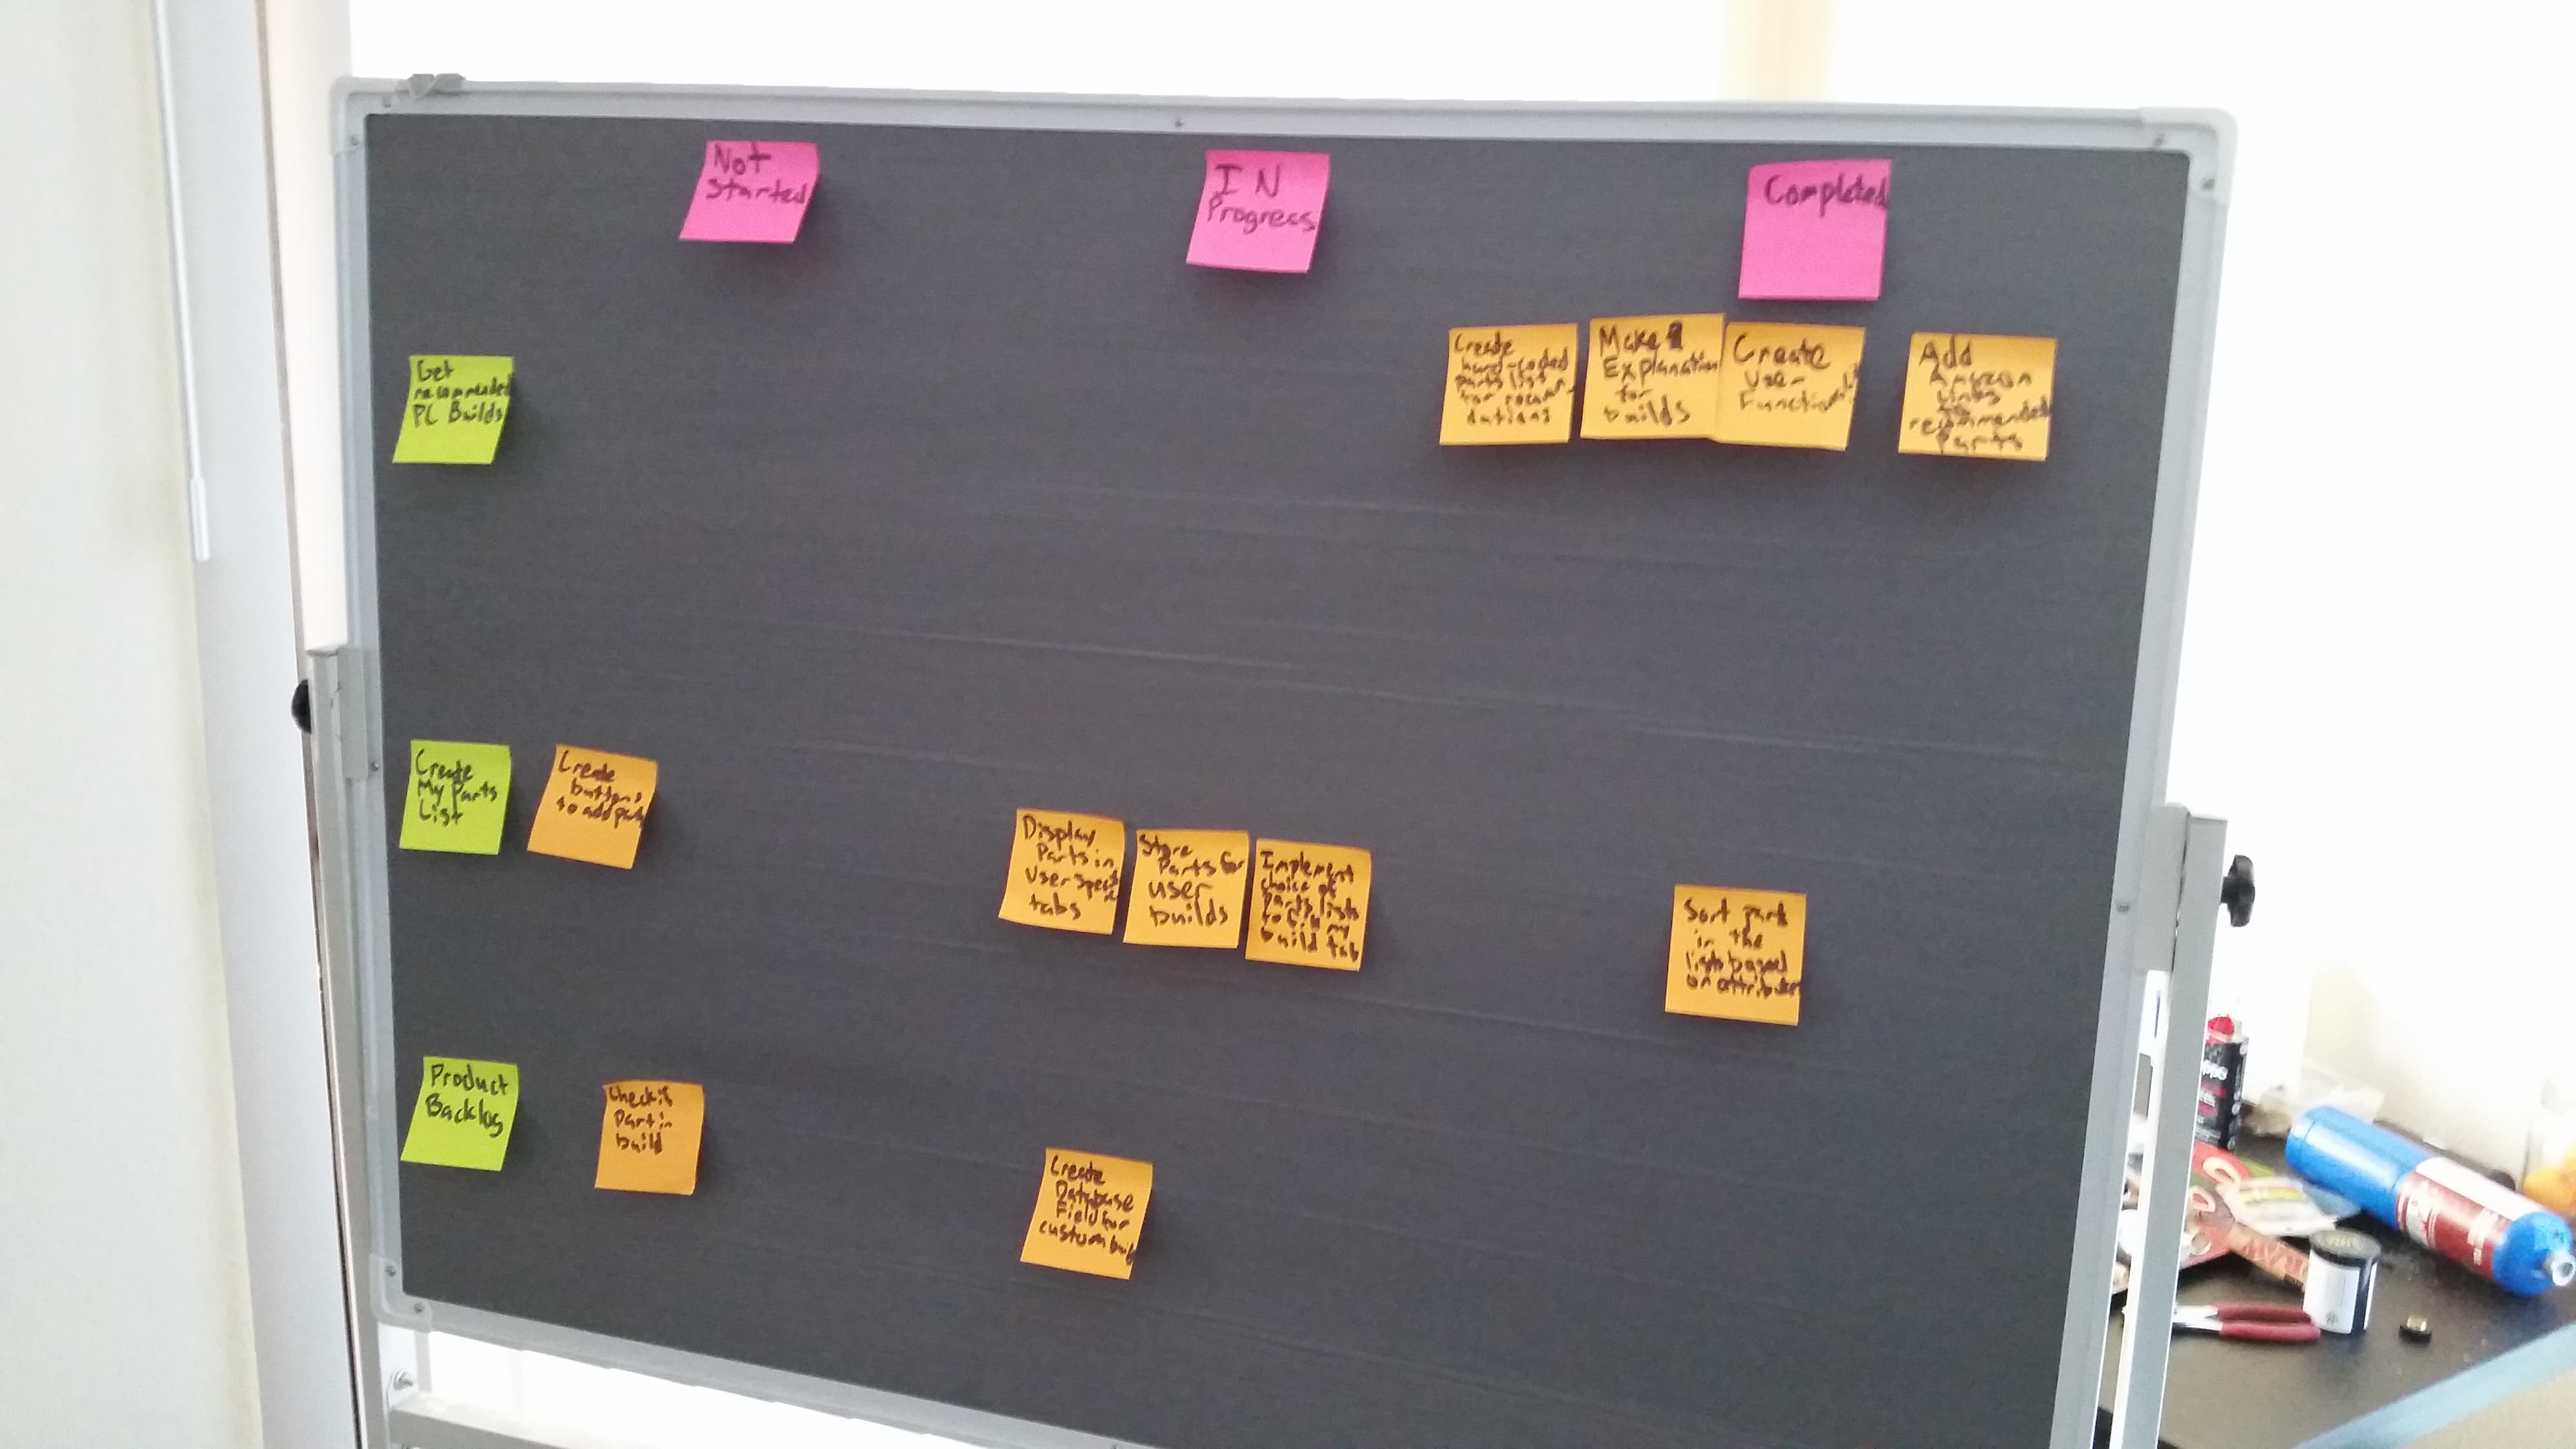 Not
Started
IN
Progress
Completed
Get
recommended
PC Builds
Create
hard-coded
parts list
for
Make
Explanation
for
builds
Create
User
Add
Amazon
Links
to
recommended
Parts
Create
My Parts
List
Create
buttons
to add
Display
Parts in
User
tabs
Store
Parts for
user
builds
Implement
choice of
parts lists
to fill my
build tab
Sort
in the
based
on
Product
Backlog
Check if
Part in
build
Create
Database
Field for
custom